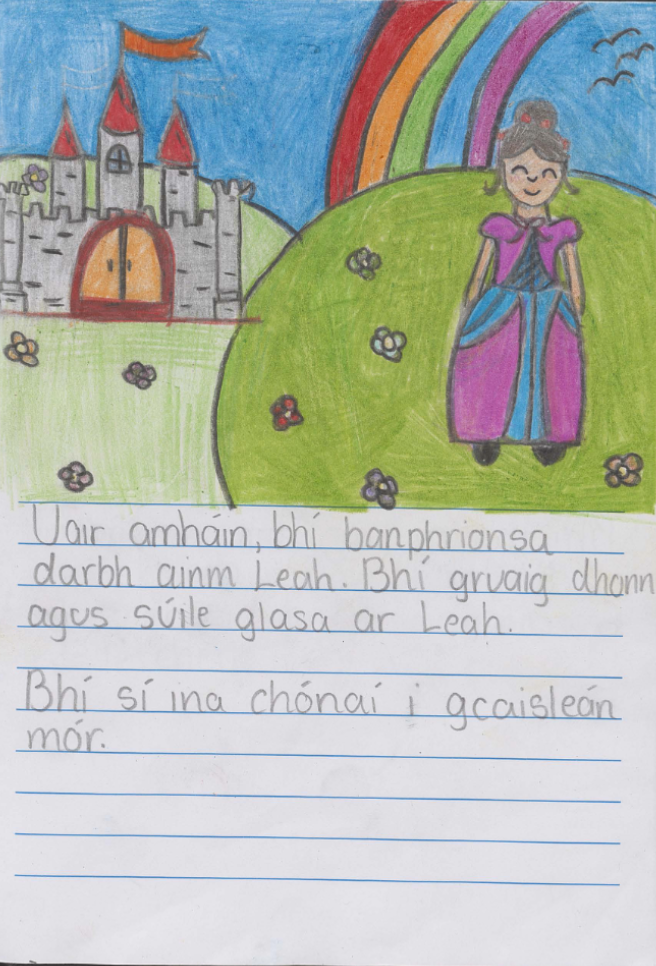 Uair amháin, bhí banphrionsa
darbh ainm Leah. Bhí gruaig dhonn
agus súile glasa ar Leah.
Bhí sí ina chónaí i gcaisleán
mór.